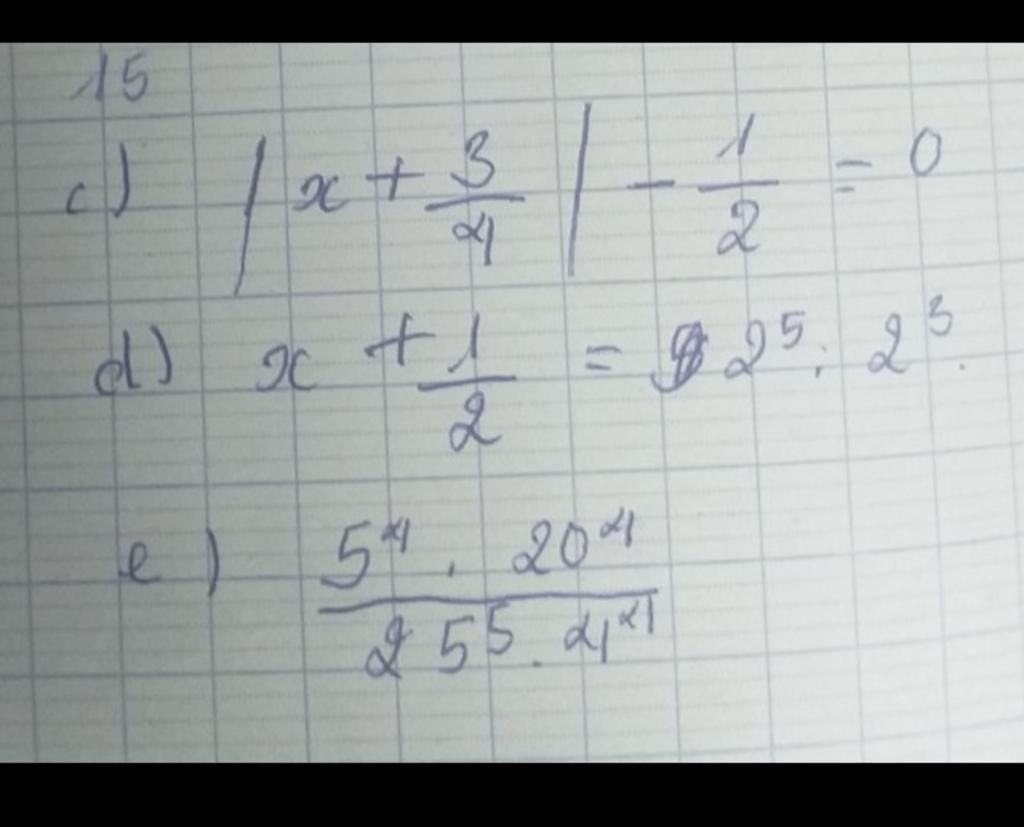 15
c) | x + 3/4 | - 1/2 = 0
d) x + 1/2 = 2⁵ : 2³.
e) (5⁴ . 20⁴)/(25⁵ . 4⁴)